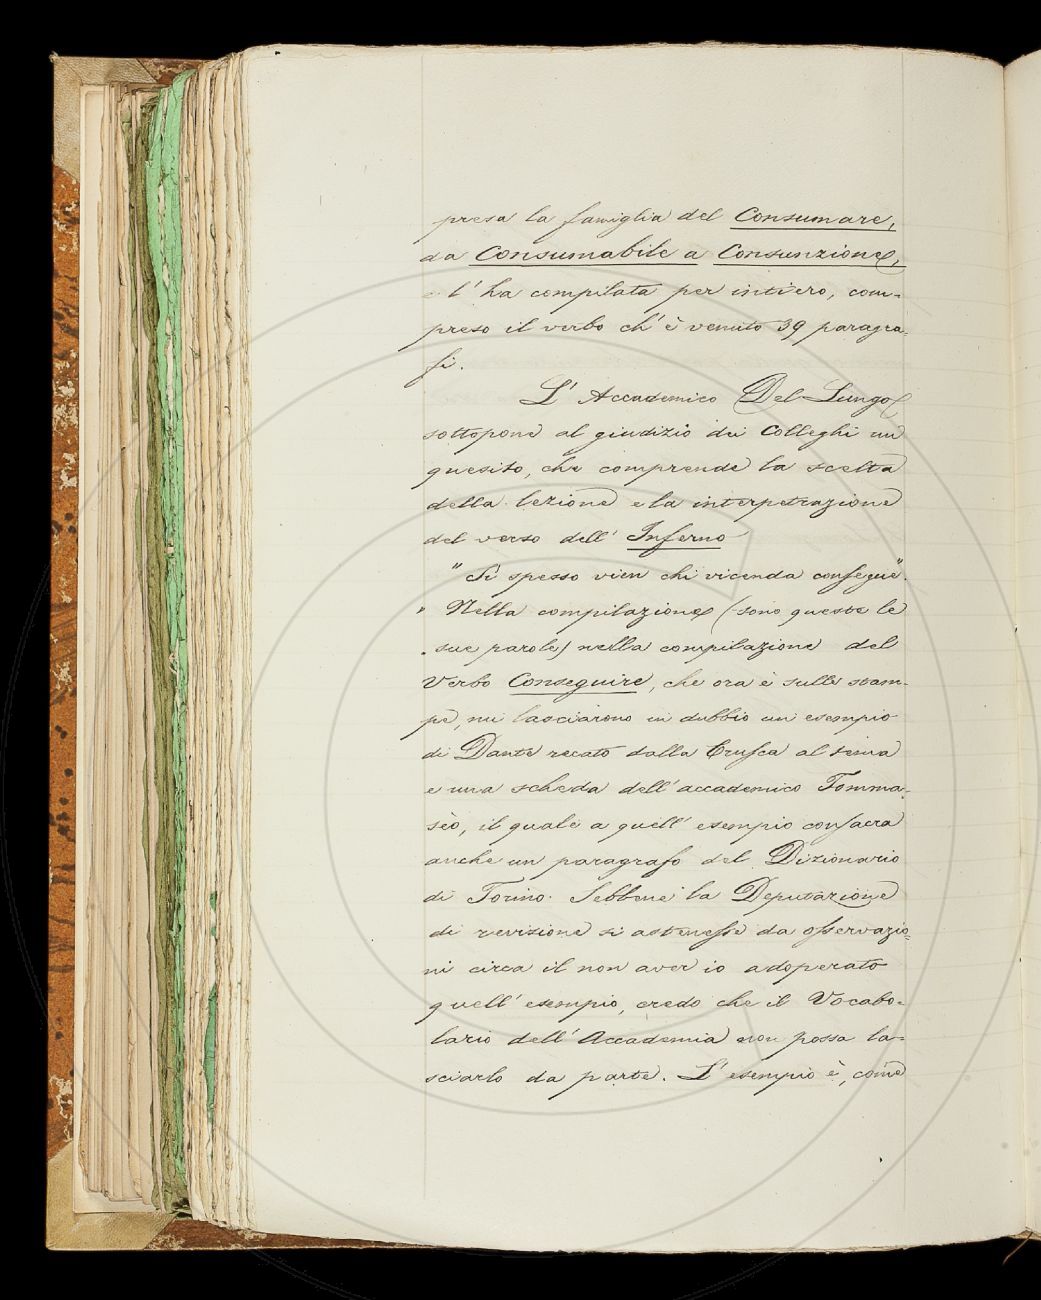 presa la famiglia del Consumare,
da Consumabile a Consunzione,
e l'ha compilata per intiero, com-
preso il verbo ch'è venuto 39 paragra-
fi.
L'Accademico Del-Lungo
sottopone al giudizio dei Colleghi un
quesito, che comprende la scelta
della lezione e la interpetrazione
del verso dell'Inferno
"Sì spesso vien chi vicenda consegue".
" Nella compilazione (sono queste le
sue parole) nella compilazione del
Verbo Conseguire, che ora è sulle stam-
pe, mi lasciarono in dubbio un esempio
di Dante recato dalla Crusca al tema
e una scheda dell'accademico Tomma-
sèo, il quale a quell'esempio consacra
anche un paragrafo del Dizionario
di Torino. Sebbene la Deputazione
di revisione si astenesse da osservazio-
ni circa il non aver io adoperato
quell'esempio, credo che il Vocabo-
lario dell'Accademia non possa la-
sciarlo da parte. L'esempio è, come